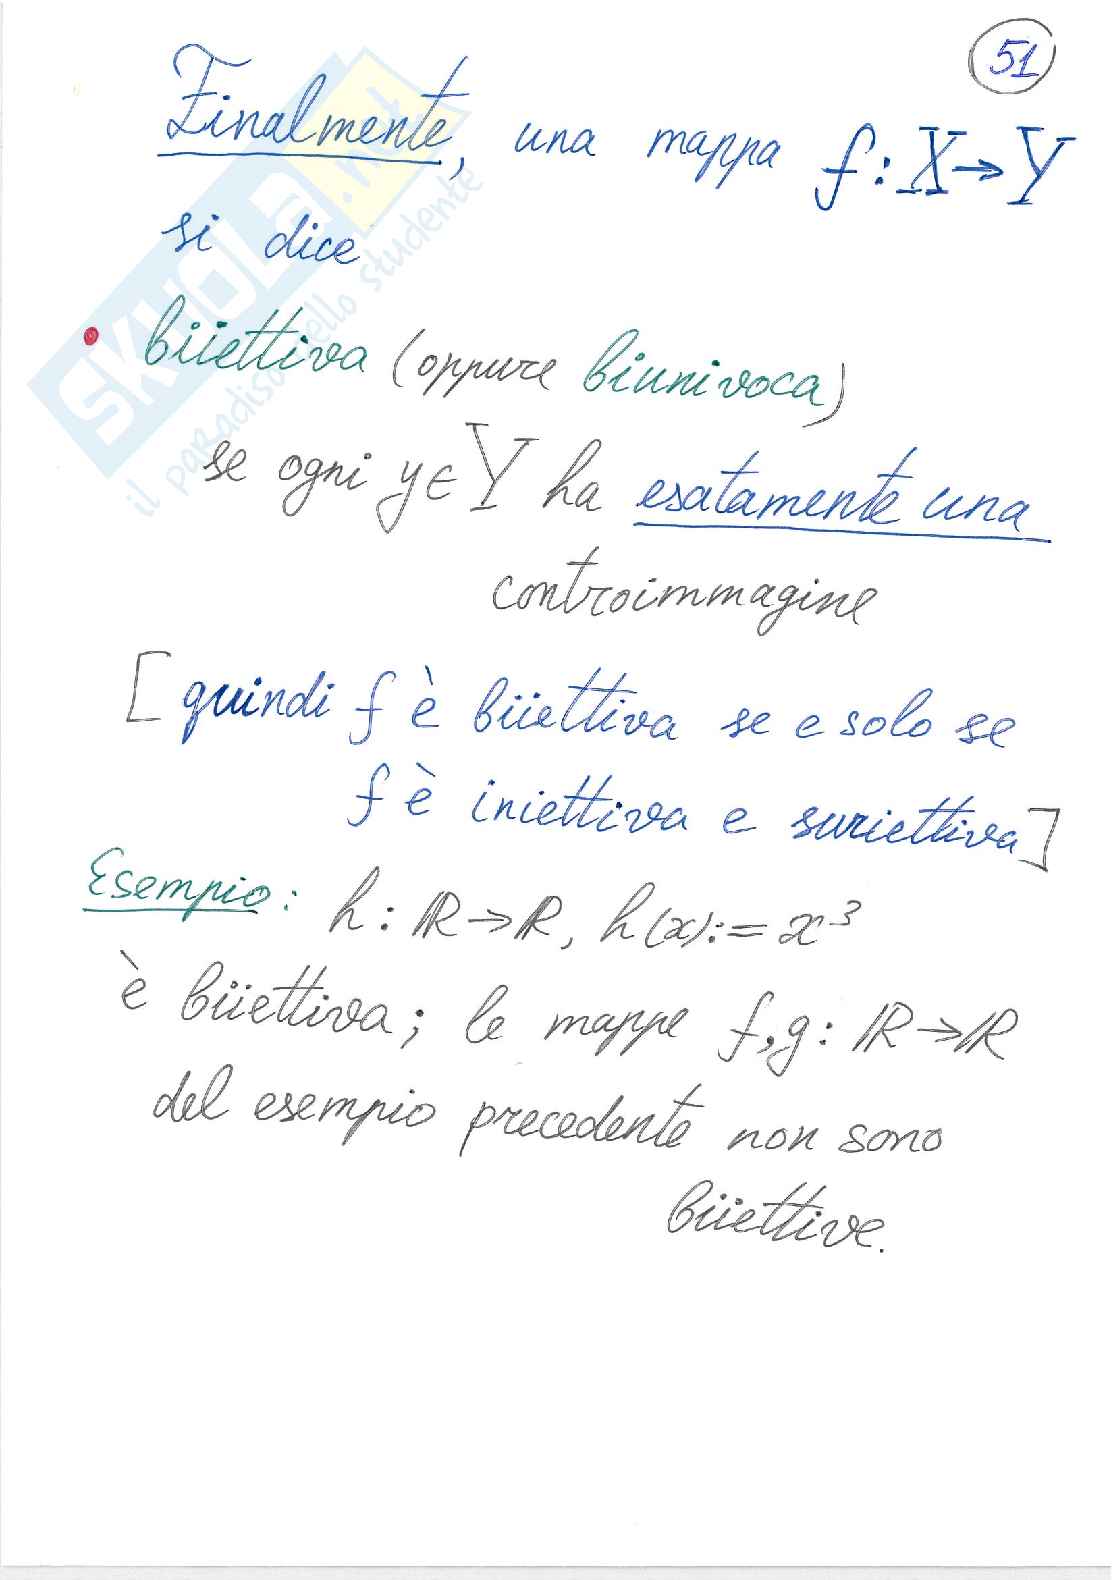 51
Finalmente, una mappa f: X→Y
si dice
• biiettiva (oppure biunivoca)
se ogni y∈Y ha esatamente una
controimmagine
[quindi f è biiettiva se e solo se
f è iniettiva e suriettiva]
Esempio: h: ℝ→ℝ, h(x):= x³
è biiettiva; le mappe f,g: ℝ→ℝ
del esempio precedente non sono
biiettive.
SKUOLA.net
il paradiso dello studente